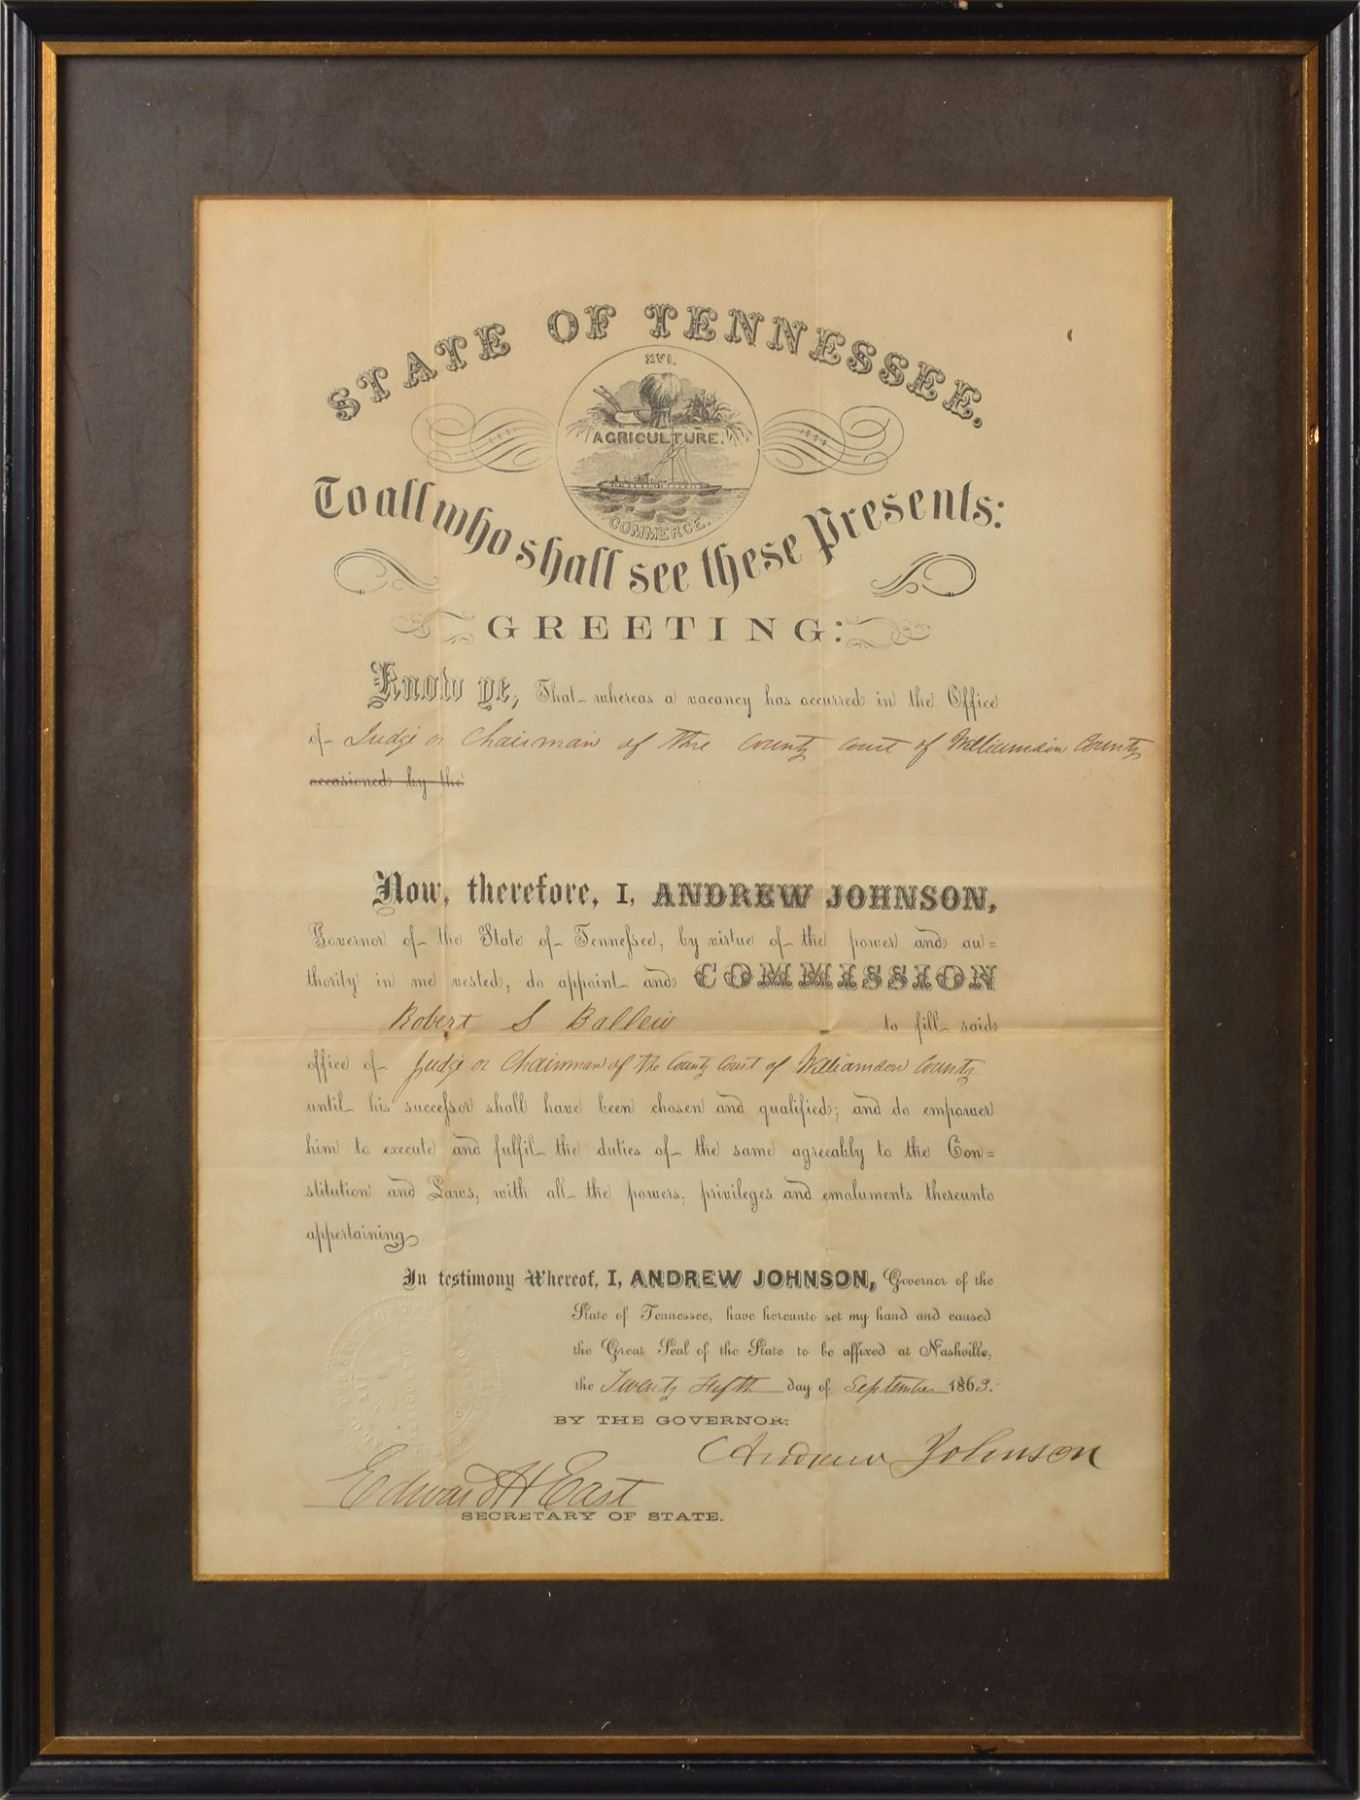 STATE OF TENNESSEE.
XVI.
AGRICULTURE.
COMMERCE.
To all who shall see these Presents:
GREETING:
Know ye, That whereas a vacancy has occurred in the Office
of Judge or Chairman of the County Court of Williamson County
occasioned by the
Now, therefore, I, ANDREW JOHNSON,
Governor of the State of Tennessee, by virtue of the power and au=
thority in me vested, do appoint and COMMISSION
Robert S Ballew to fill said
office of Judge or Chairman of the County Court of Williamson County
until his successor shall have been chosen and qualified; and do empower
him to execute and fulfil the duties of the same agreeably to the Con=
stitution and Laws, with all the powers, privileges and emoluments thereunto
appertaining
In testimony Whereof, I, ANDREW JOHNSON, Governor of the
State of Tennessee, have hereunto set my hand and caused
the Great Seal of the State to be affixed at Nashville,
the Twenty Fifth day of September 1863.
BY THE GOVERNOR:
Andrew Johnson
Edward H East
SECRETARY OF STATE.